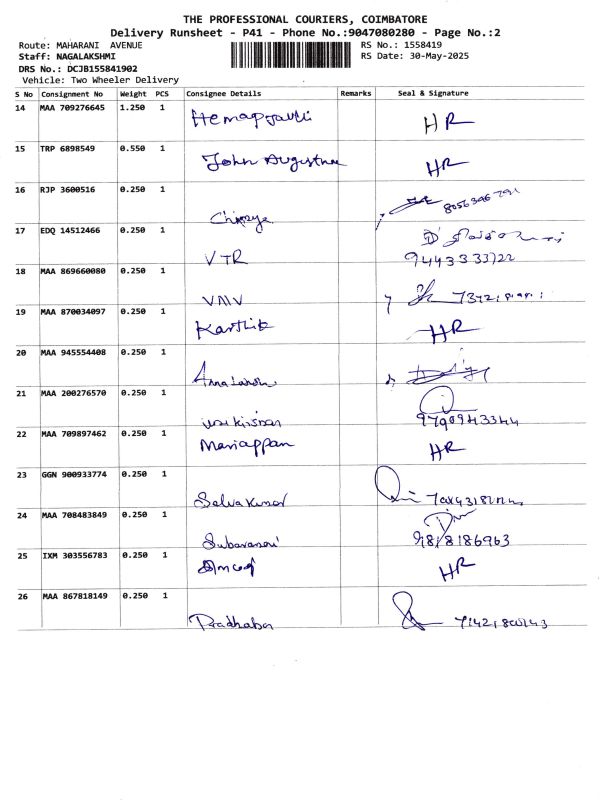 THE PROFESSIONAL COURIERS, COIMBATORE
Delivery Runsheet - P41 - Phone No.:9047080280 - Page No.:2
Route: MAHARANI AVENUE RS No.: 1558419
Staff: NAGALAKSHMI RS Date: 30-May-2025
DRS No.: DCJB155841902
Vehicle: Two Wheeler Delivery
S No Consignment No Weight PCS Consignee Details Remarks Seal & Signature
14 MAA 709276645 1.250 1 HR
15 TRP 6898549 0.550 1 John HR
16 RJP 3600516 0.250 1
17 EDQ 14512466 0.250 1 VTR
9443333722
18 MAA 869660080 0.250 1
19 MAA 870034097 0.250 1 Karthik HR
20 MAA 945554408 0.250 1
21 MAA 200276570 0.250 1 9790943344
22 MAA 709897462 0.250 1 Mariappan HR
23 GGN 900933774 0.250 1
24 MAA 708483849 0.250 1 9818186963
25 IXM 303556783 0.250 1 HR
26 MAA 867818149 0.250 1